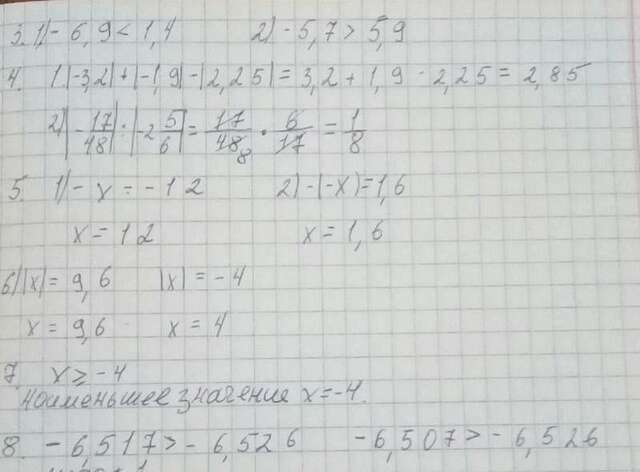 3. 1) - 6,9 < 1,4 2) - 5,7 > 5,9
4. 1. |-3,2| + |-1,9| - |2,25| = 3,2 + 1,9 - 2,25 = 2,85
2) |-17/48| : |-2 5/6| = 17/48 8 · 6/17 = 1/8
5. 1) - x = - 12 2) -(-x) = 1,6
x = 12 x = 1,6
6) |x| = 9,6 |x| = -4
x = 9,6 x = 4
7. x ≥ -4
Наименьшее значение x = -4.
8. - 6,517 > - 6,526 - 6,507 > - 6,526